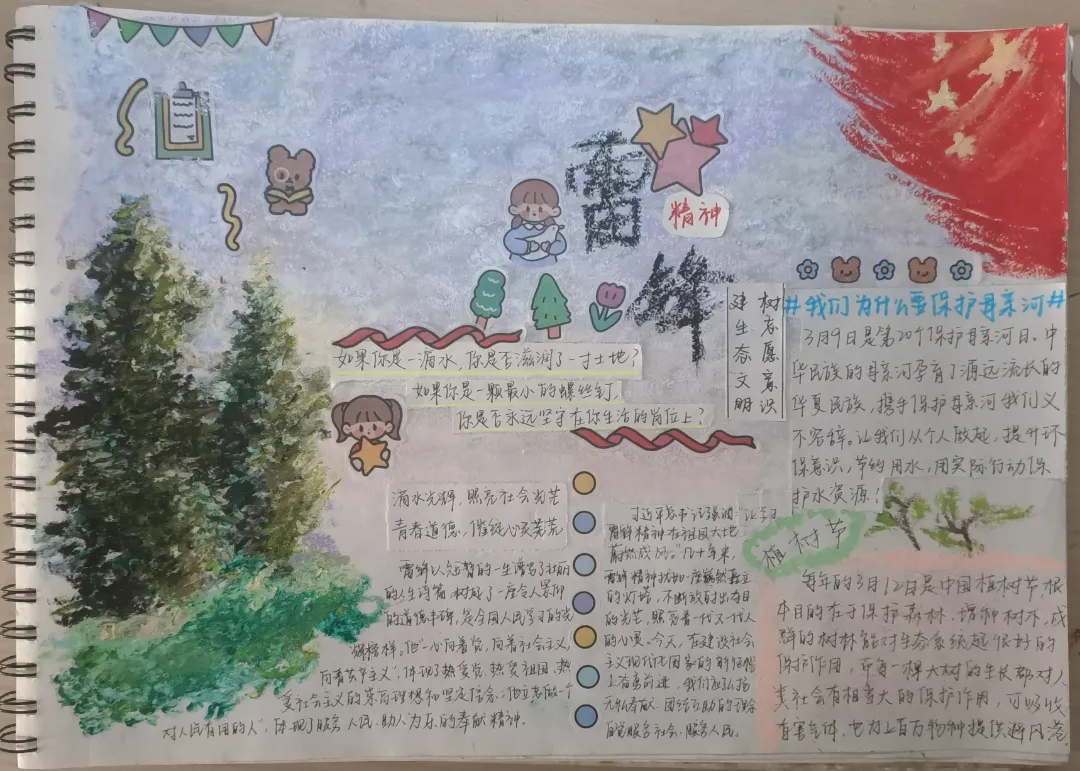 雷锋
精神
如果你是一滴水,你是否滋润了一寸土地?
如果你是一颗最小的螺丝钉,
你是否永远坚守在你生活的岗位上?
树志愿意识
建生态文明
#我们为什么要保护母亲河#
3月9日是第20个保护母亲河日。中
华民族的母亲河孕育了源远流长的
华夏民族,携手保护母亲河我们义
不容辞。让我们从个人做起,提升环
保意识,节约用水,用实际行动保
护水资源!
滴水光辉,照亮社会光芒
青春道德,催绽心灵荒荒
雷锋以短暂的一生谱写了壮丽
的人生诗篇,树起了一座令人景仰
的道德丰碑,是全国人民学习的光
辉榜样。他“一心向着党,向着社会主义,
向着共产主义”,体现了热爱党、热爱祖国、热
爱社会主义的崇高理想和坚定信念;他立志做一个
对人民有用的人”,体现了服务人民、助人为乐的奉献精神。
习近平总书记强调“让学习
雷锋精神在祖国大地
蔚然成风。”几十年来,
雷锋精神犹如一座巍然矗立
的灯塔,不断放射出夺目
的光芒,照亮着一代又一代人
的心灵。今天,在建设社会
主义现代化国家的新征程
上奋勇前进,我们应弘扬
无私奉献、团结互助的理念
自觉服务社会、服务人民。
植树节
每年的3月12日是中国植树节,根
本目的在于保护森林,增种树木,成
群的树林能对生态系统起很好的
保护作用,而每一棵大树的生长都对人
类社会有相当大的保护作用,可吸收
有害气体,也为上百万物种提供避风港